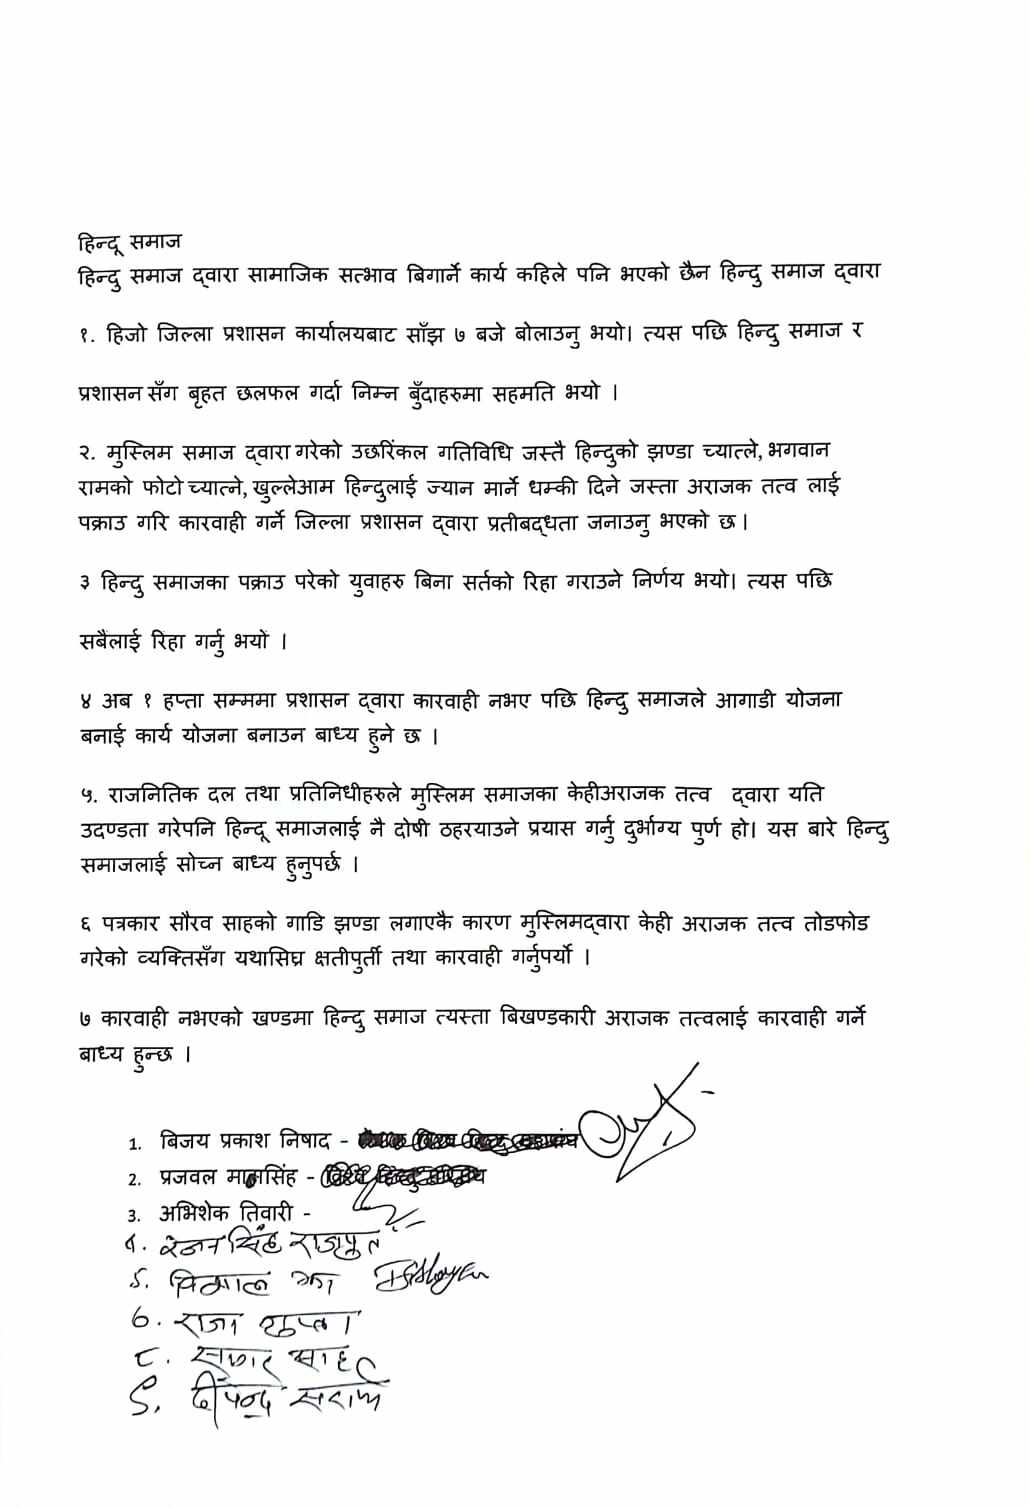 हिन्दू समाज
हिन्दु समाज द्वारा सामाजिक सत्भाव बिगार्ने कार्य कहिले पनि भएको छैन हिन्दु समाज द्वारा
१. हिजो जिल्ला प्रशासन कार्यालयबाट साँझ ७ बजे बोलाउनु भयो। त्यस पछि हिन्दु समाज र
प्रशासन सँग बृहत छलफल गर्दा निम्न बुँदाहरुमा सहमति भयो ।
२. मुस्लिम समाज द्वारा गरेको उछरिंकल गतिविधि जस्तै हिन्दुको झण्डा च्यात्ले, भगवान
रामको फोटो च्यात्ने, खुल्लेआम हिन्दुलाई ज्यान मार्ने धम्की दिने जस्ता अराजक तत्व लाई
पक्राउ गरि कारवाही गर्ने जिल्ला प्रशासन द्वारा प्रतीबद्धता जनाउनु भएको छ ।
३ हिन्दु समाजका पक्राउ परेको युवाहरु बिना सर्तको रिहा गराउने निर्णय भयो। त्यस पछि
सबैंलाई रिहा गर्नु भयो ।
४ अब १ हप्ता सम्ममा प्रशासन द्वारा कारवाही नभए पछि हिन्दु समाजले आगाडी योजना
बनाई कार्य योजना बनाउन बाध्य हुने छ ।
५. राजनितिक दल तथा प्रतिनिधीहरुले मुस्लिम समाजका केहीअराजक तत्व द्वारा यति
उदण्डता गरेपनि हिन्दू समाजलाई नै दोषी ठहरयाउने प्रयास गर्नु दुर्भाग्य पुर्ण हो। यस बारे हिन्दु
समाजलाई सोच्न बाध्य हुनुपर्छ ।
६ पत्रकार सौरव साहको गाडि झण्डा लगाएकै कारण मुस्लिमद्वारा केही अराजक तत्व तोडफोड
गरेको व्यक्तिसँग यथासिघ्र क्षतीपुर्ती तथा कारवाही गर्नुपर्यो ।
७ कारवाही नभएको खण्डमा हिन्दु समाज त्यस्ता बिखण्डकारी अराजक तत्वलाई कारवाही गर्ने
बाध्य हुन्छ ।
1. बिजय प्रकाश निषाद -
2. प्रजवल मालसिंह -
3. अभिशेक तिवारी -
४. रंजन सिंह राजपूत
५. झा
6. राजा गुप्ता
८. साह
९. दीपेन्द्र सर्राफ